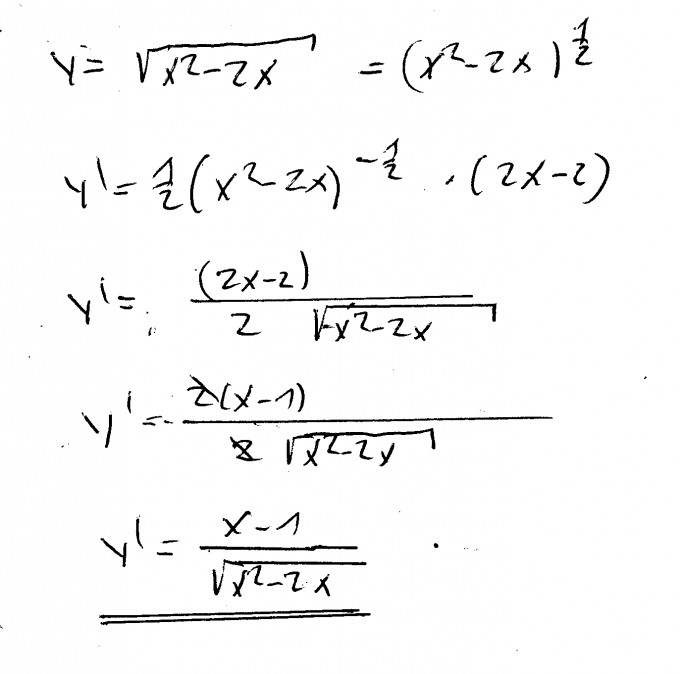 y = √(x²-2x) = (x²-2x)^(1/2)
y' = 1/2 (x²-2x)^(-1/2) · (2x-2)
y' = (2x-2) / (2 √(x²-2x))
y' = 2(x-1) / (2 √(x²-2x))
y' = (x-1) / √(x²-2x)